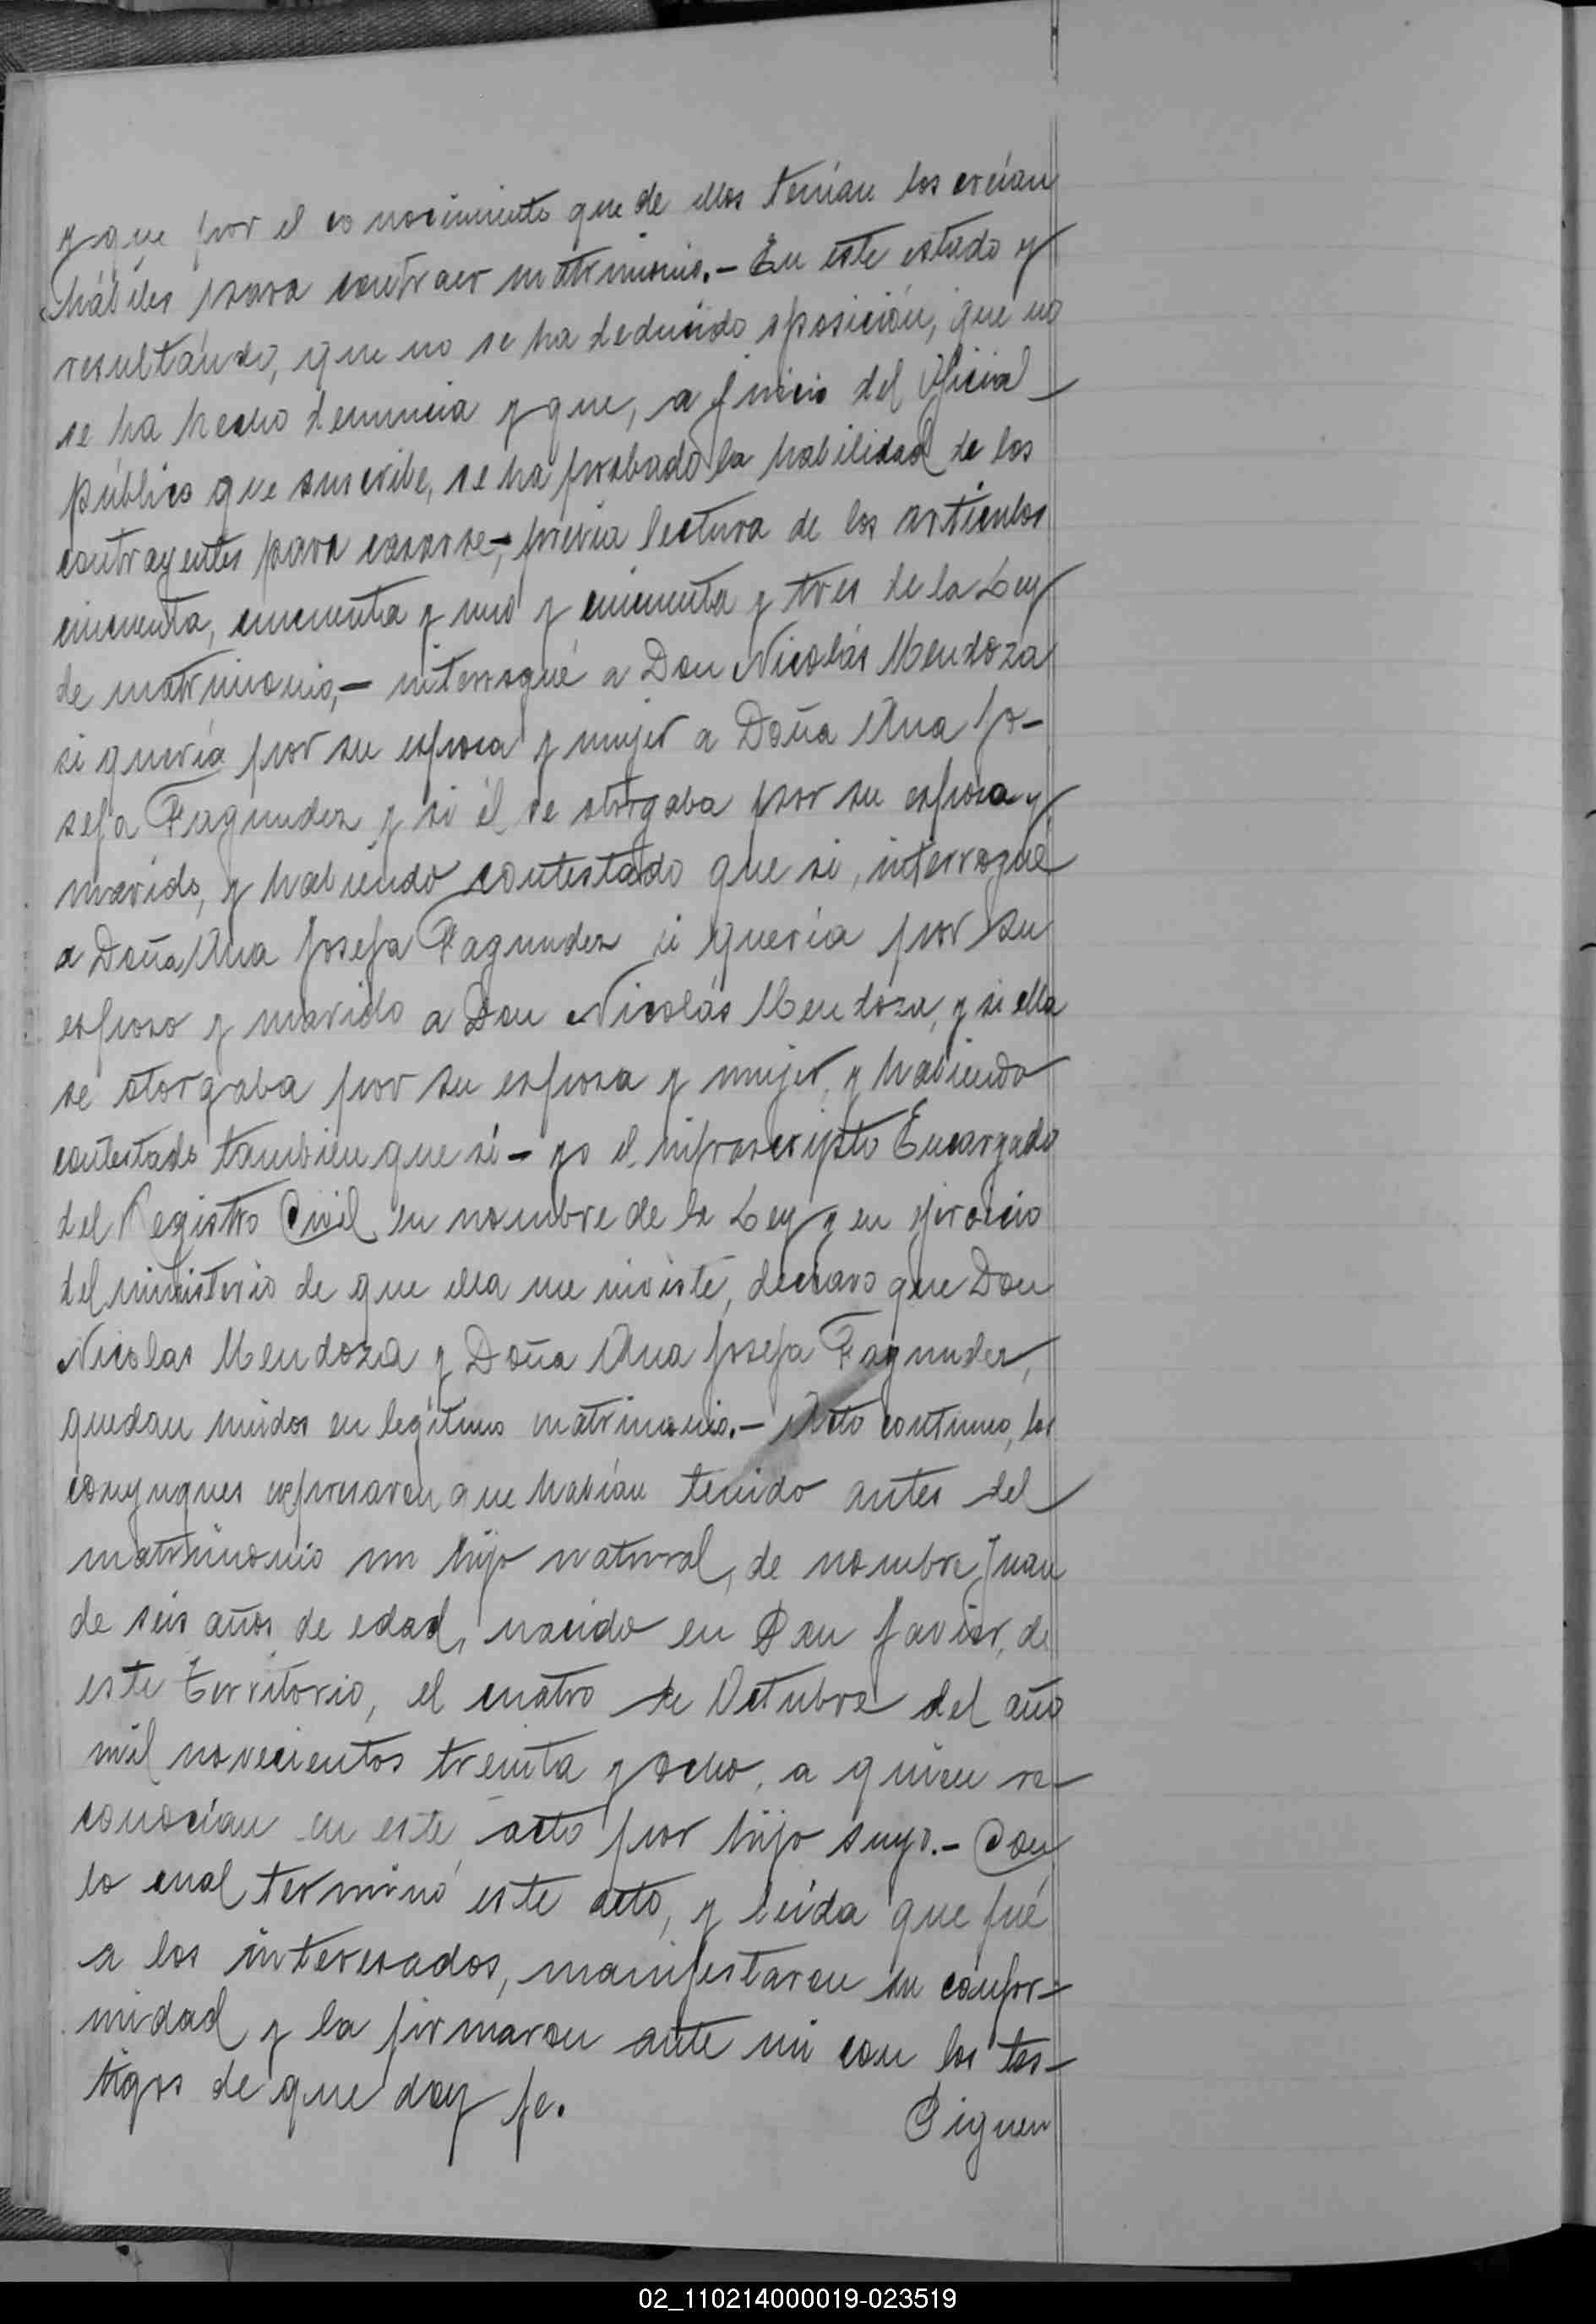 y que por el conocimiento que de ellos tenían los creían
hábiles para contraer matrimonio.- En este estado y
resultándo, que no se ha deducido oposición, que no
se ha hecho denuncia y que, a juicio del Oficial
público que suscribe, se ha probado la habilidad de los
contrayentes para casarse-, previa lectura de los artículos
cincuenta, cincuenta y uno y cincuenta y tres de la Ley
de matrimonio,- interrogué a Don Nicolás Mendoza
si quería por su esposa y mujer a Doña Ana Jo-
sefa Fagundez y si él se otorgaba por su esposo y
marido, y habiendo contestado que si, interrogué
a Doña Ana Josefa Fagundez si quería por su
esposo y marido a Don Nicolás Mendoza, y si ella
se otorgaba por su esposa y mujer, y habiendo
contestado tambien que sí - yo el infrascripto Encargado
del Registro Civil en nombre de la Ley y en ejercicio
del ministerio de que ella me inviste, declaro que Don
Nicolas Mendoza y Doña Ana Josefa Fagundez,
quedan unidos en legítimo matrimonio.- Acto continuo, los
conyugues expresaron que habían tenido antes del
matrimonio un hijo natural, de nombre Juan
de seis años de edad, nacido en San Javier, de
este territorio, el cuatro de Octubre del año
mil novecientos treinta y ocho, a quien re-
conocían en este acto por hijo suyo.- Con
lo cual terminó este acto, y leida que fué
a los interesados, manifestaron su confor-
midad y la firmaron ante mi con los tes-
tigos de que doy fe.
Siguen
02_110214000019-023519